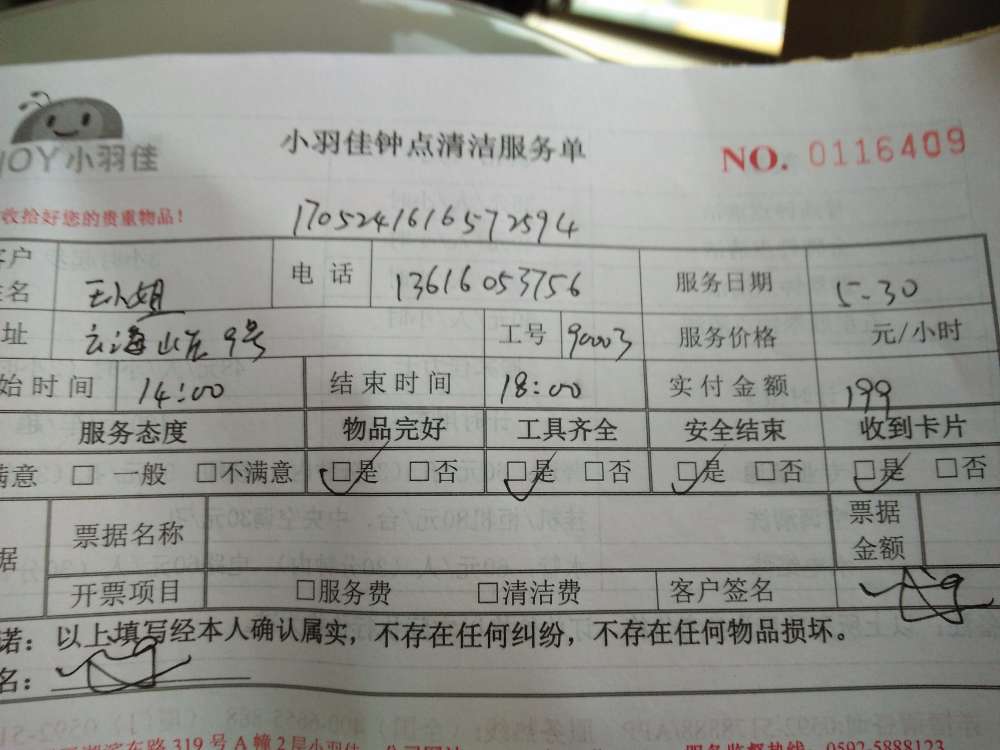 小羽佳钟点清洁服务单
NO. 0116409
JOY小羽佳
收拾好您的贵重物品！
1705241616572594
客户姓名 电话 13616053756 服务日期 5-30
址 云海山庄9号 工号 90003 服务价格 元/小时
始时间 14:00 结束时间 18:00 实付金额 199
服务态度 物品完好 工具齐全 安全结束 收到卡片
满意 □ 一般 □不满意 □是 □否 □是 □否 □是 □否 □是 □否
据 票据名称 票据金额
开票项目 □服务费 □清洁费 客户签名
诺：以上填写经本人确认属实，不存在任何纠纷，不存在任何物品损坏。
名：
湖滨东路319号A幢2层小羽佳 公司网站 服务监督热线：0592-5888123